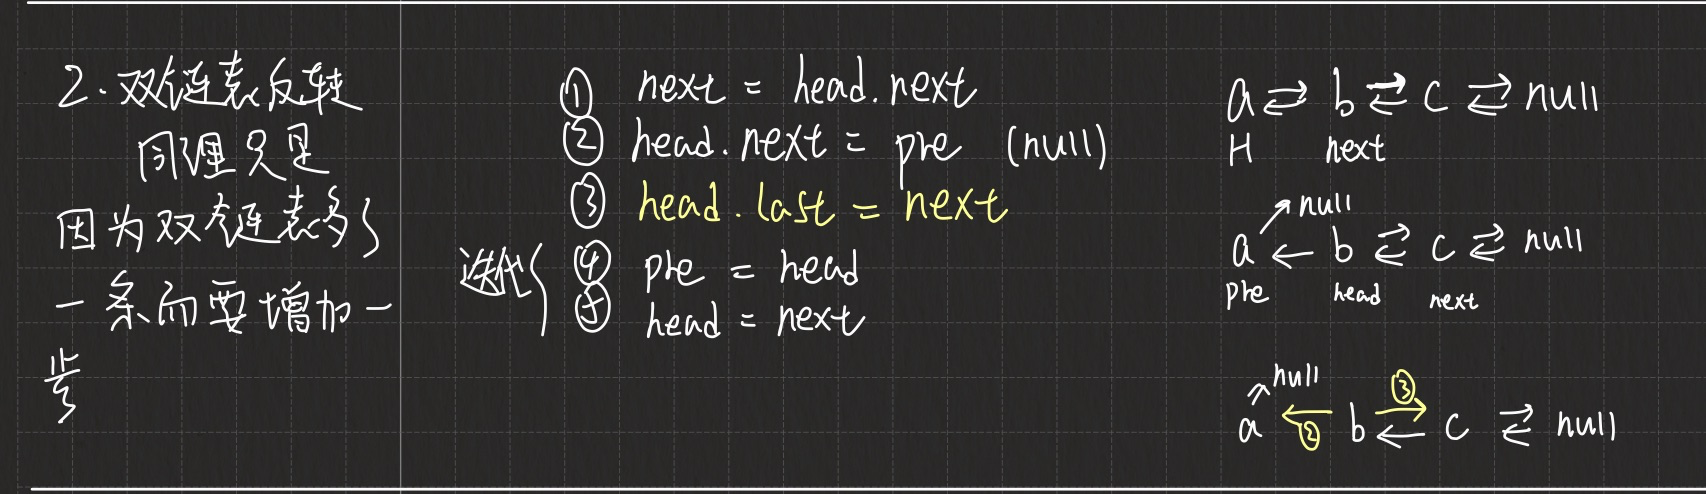 2.双链表反转
同理只是
因为双链表多了
一条而要增加一
步
① next = head.next
② head.next = pre (null)
③ head.last = next
迭代{ ④ pre = head
⑤ head = next
a ⇄ b ⇄ c ⇄ null
H next
↗ null
a ← b ⇄ c ⇄ null
pre head next
↗ null ③
a ← b ⇄ c ⇄ null
②